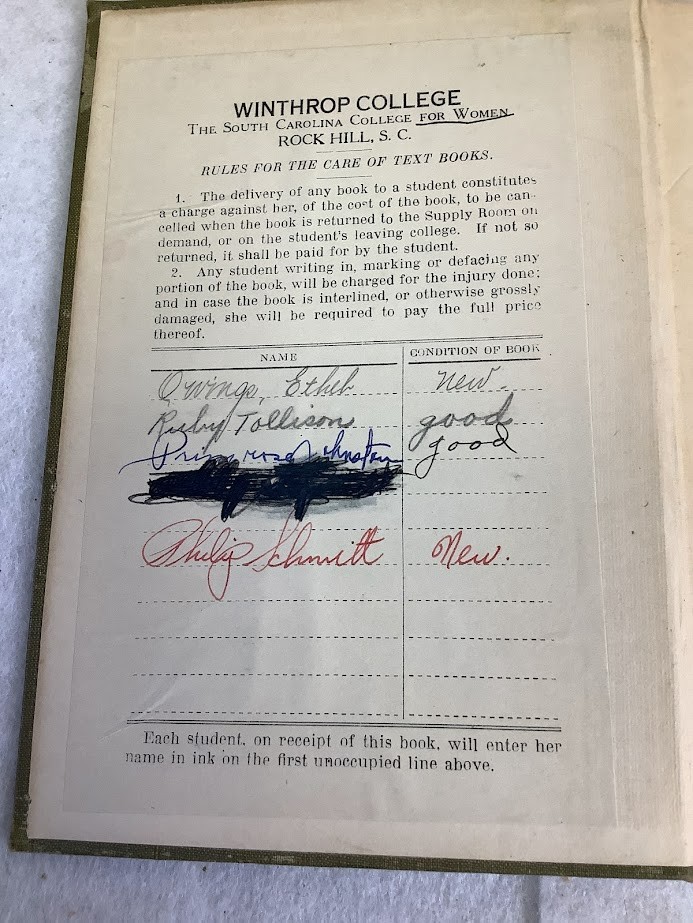 WINTHROP COLLEGE
THE SOUTH CAROLINA COLLEGE FOR WOMEN
ROCK HILL, S. C.
RULES FOR THE CARE OF TEXT BOOKS.
1. The delivery of any book to a student constitutes
a charge against her, of the cost of the book, to be can-
celled when the book is returned to the Supply Room on
demand, or on the student's leaving college. If not so
returned, it shall be paid for by the student.
2. Any student writing in, marking or defacing any
portion of the book, will be charged for the injury done;
and in case the book is interlined, or otherwise grossly
damaged, she will be required to pay the full price
thereof.
NAME CONDITION OF BOOK
Owings, Ethel New.
Ruby Tollison good
Primrose Johnston good
Philip Schmitt New.
Each student, on receipt of this book, will enter her
name in ink on the first unoccupied line above.